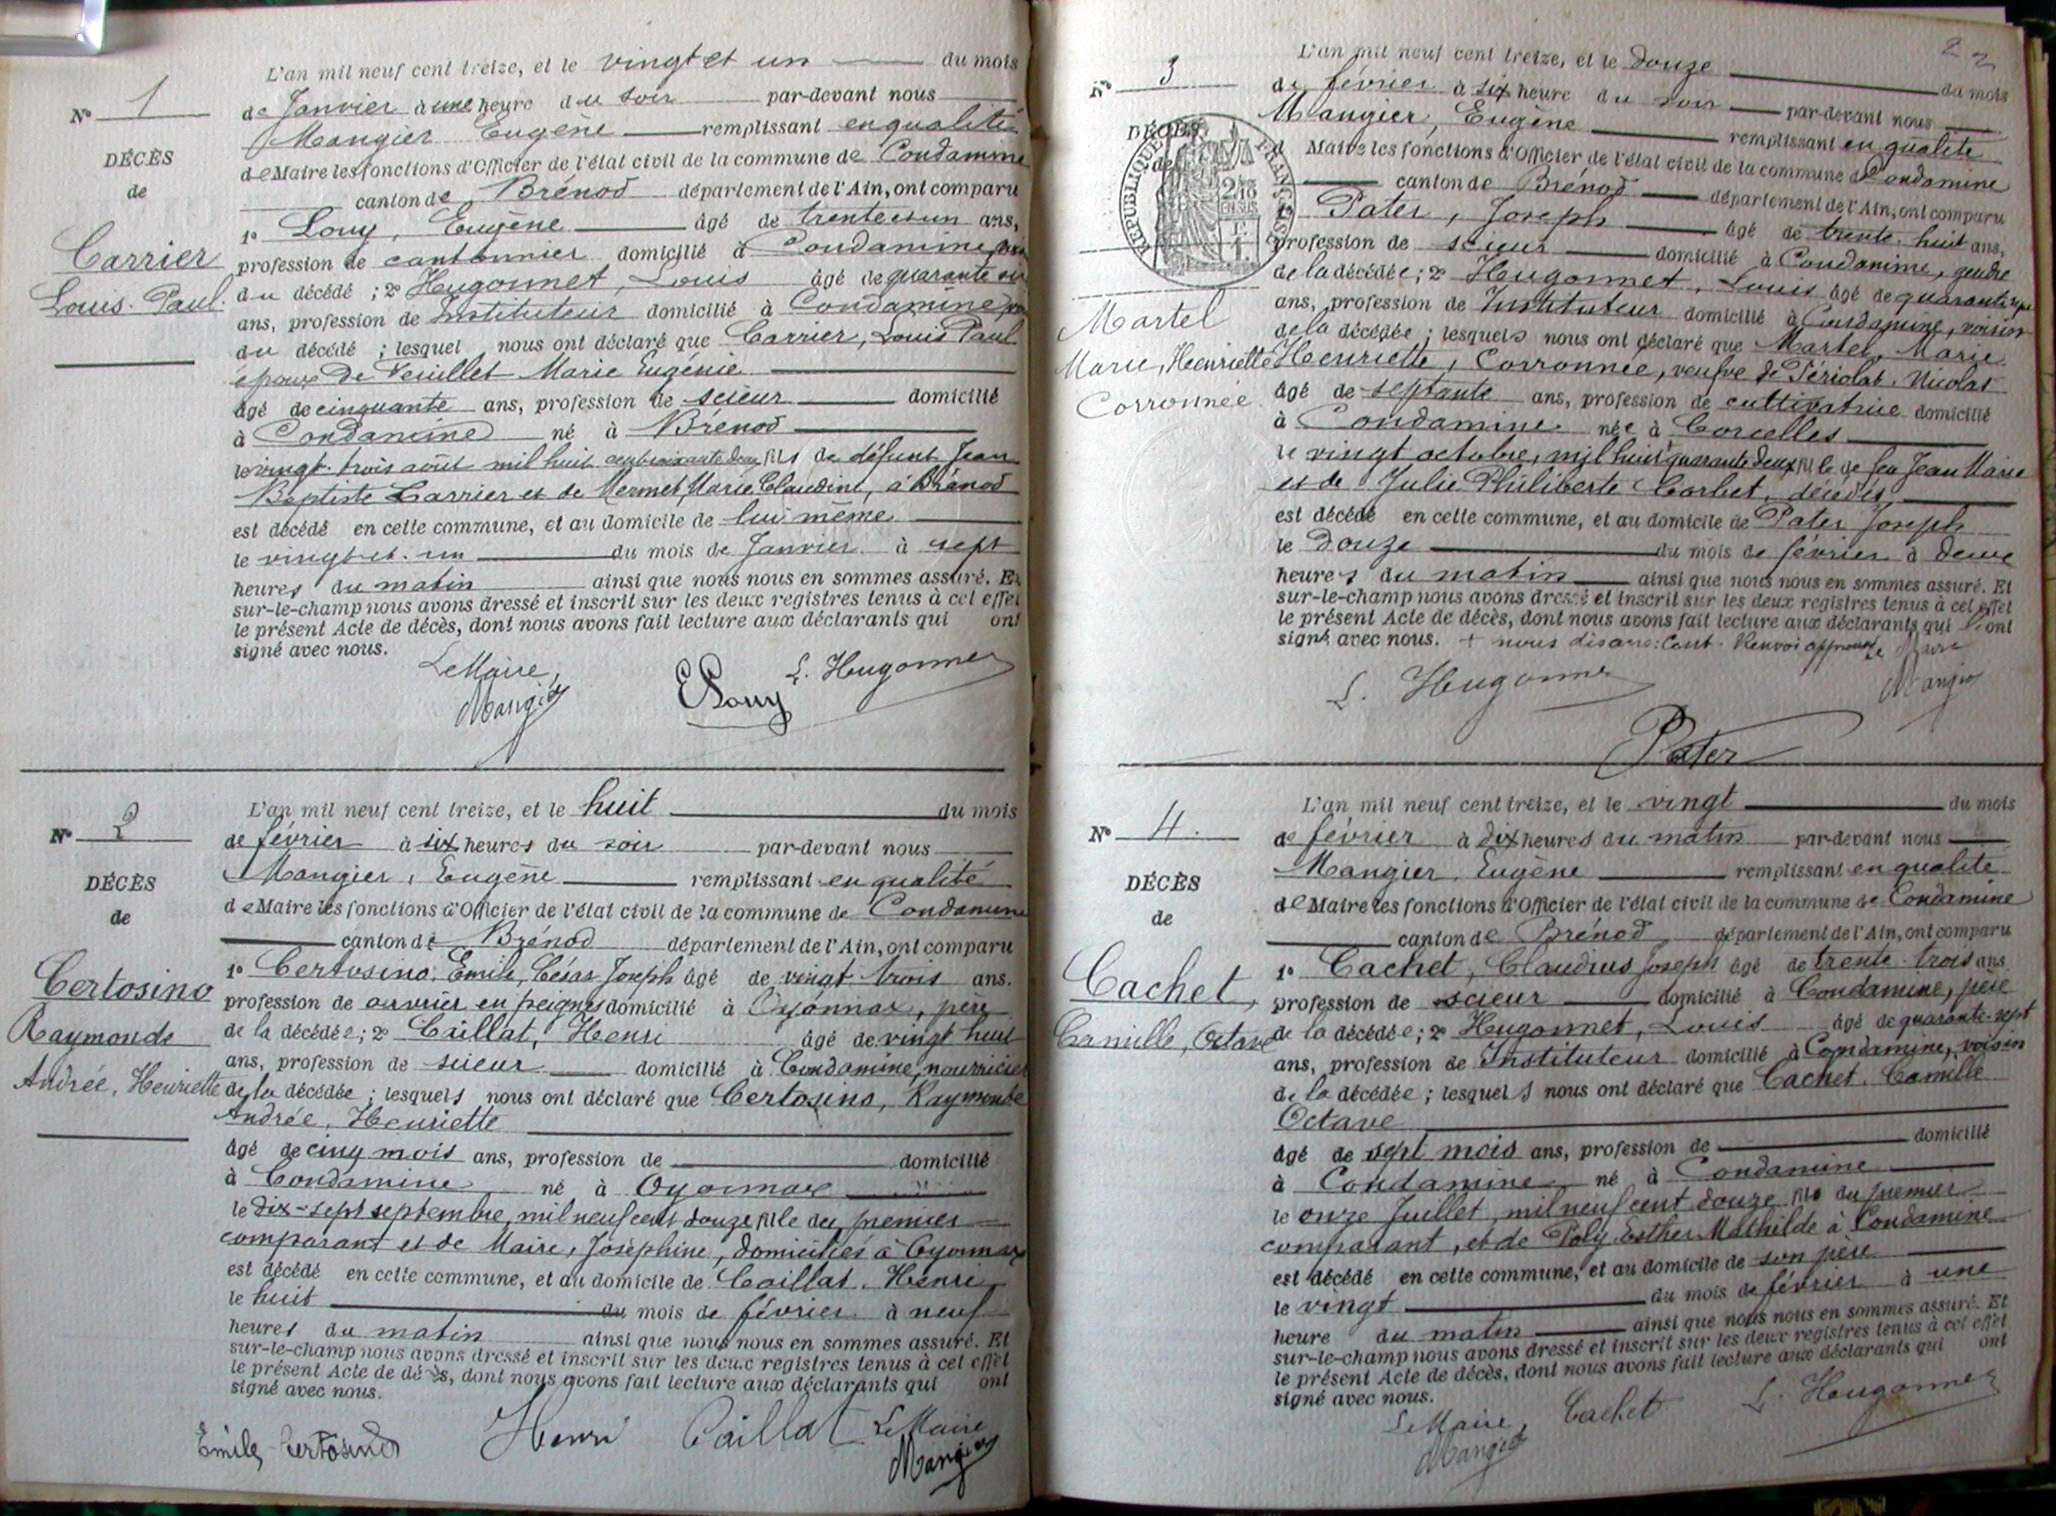 N° 1
DÉCÈS
de
Carrier
Louis-Paul.
L'an mil neuf cent treize, et le vingt et un du mois
de Janvier à une heure du soir par-devant nous
Mangier Eugène remplissant en qualité
de Maire les fonctions d'Officier de l'état civil de la commune de Condamine
canton de Brénod département de l'Ain, ont comparu
1° Louy, Eugène âgé de trente et un ans,
profession de cantonnier domicilié à Condamine,
du décédé ; 2° Hugonnet, Louis âgé de quarante
ans, profession de Instituteur domicilié à Condamine
du décédé ; lesquel nous ont déclaré que Carrier, Louis Paul
époux de Veuillet Marie Eugénie
âgé de cinquante ans, profession de scieur domicilié
à Condamine né à Brénod
le vingt-trois août mil huit cent soixante deux fils de défunt Jean
Baptiste Carrier et de Mermet, Marie Claudine, à Brénod
est décédé en cette commune, et au domicile de lui même
le vingt et un du mois de Janvier à sept
heures du matin ainsi que nous nous en sommes assuré. Et
sur-le-champ nous avons dressé et inscrit sur les deux registres tenus à cet effet
le présent Acte de décès, dont nous avons fait lecture aux déclarants qui ont
signé avec nous.
Le Maire,
Mangier
E Louy
L. Hugonnet
N° 2
DÉCÈS
de
Certosino
Raymonde
Andrée, Henriette
L'an mil neuf cent treize, et le huit du mois
de février à six heures du soir par-devant nous
Mangier, Eugène remplissant en qualité
de Maire les fonctions d'Officier de l'état civil de la commune de Condamine
canton de Brénod département de l'Ain, ont comparu
1° Certosino, Emile, César Joseph âgé de vingt trois ans.
profession de ouvrier en peignes domicilié à Oyonnax, père
de la décédée; 2° Caillat, Henri âgé de vingt huit
ans, profession de scieur domicilié à Condamine, nourricier
de la décédée ; lesquels nous ont déclaré que Certosino, Raymonde
Andrée, Henriette
âgé de cinq mois ans, profession de domicilié
à Condamine né à Oyonnax
le dix-sept septembre, mil neuf cent douze fille du premier
comparant et de Maire, Joséphine, domiciliés à Oyonnax
est décédé en cette commune, et au domicile de Caillat. Henri
le huit du mois de février à neuf
heures du matin ainsi que nous nous en sommes assuré. Et
sur-le-champ nous avons dressé et inscrit sur les deux registres tenus à cet effet
le présent Acte de décès, dont nous avons fait lecture aux déclarants qui ont
signé avec nous.
Emile Certosino
Henri Caillat
Le Maire
Mangier
22
N° 3
DÉCÈS
de
RÉPUBLIQUE FRANÇAISE
2/10 EN SUS
Martel
Marie, Henriette
Corronnée
L'an mil neuf cent treize, et le douze du mois
du février à six heure du soir par-devant nous
Mangier, Eugène remplissant en qualité
d Maire les fonctions d'Officier de l'état civil de la commune de Condamine
canton de Brénod département de l'Ain, ont comparu
1° Pater, Joseph âgé de trente-huit ans,
profession de scieur domicilié à Condamine, gendre
de la décédée; 2° Hugonnet, Louis âgé de quarante sept
ans, profession de Instituteur domicilié à Condamine, voisin
de la décédée ; lesquels nous ont déclaré que Martel, Marie
Henriette, Corronnée, veufve de Périolat. Nicolas
âgé de septante ans, profession de cultivatrice domicilié
à Condamine née à Corcelles
le vingt octobre, mil huit + quarante deux fille de feu Jean Marie
et de Julie Philiberte Corbet, décédés
est décédé en cette commune, et au domicile de Pater Joseph
le douze du mois de février à deux
heures du matin ainsi que nous nous en sommes assuré. Et
sur-le-champ nous avons dressé et inscrit sur les deux registres tenus à cet effet
le présent Acte de décès, dont nous avons fait lecture aux déclarants qui ont
signé avec nous. + nous disons: Cent. Renvoi approuvé Le Maire
L. Hugonnet
Mangier
Pater
N° 4.
DÉCÈS
de
Cachet,
Camille, Octave
L'an mil neuf cent treize, et le vingt du mois
de février à dix heures du matin par-devant nous
Mangier, Eugène remplissant en qualité
de Maire les fonctions d'Officier de l'état civil de la commune de Condamine
canton de Brénod département de l'Ain, ont comparu
1° Cachet, Claudius Joseph âgé de trente-trois ans
profession de scieur domicilié à Condamine, père
de la décédée; 2° Hugonnet, Louis âgé de quarante-sept
ans, profession de Instituteur domicilié à Condamine, voisin
de la décédée ; lesquels nous ont déclaré que Cachet. Camille
Octave
âgé de sept mois ans, profession de domicilié
à Condamine né à Condamine
le onze Juillet mil neuf cent douze fils du premier
comparant, et de Poly Esther Mathilde à Condamine
est décédé en cette commune, et au domicile de son père
le vingt du mois de février à une
heure du matin ainsi que nous nous en sommes assuré. Et
sur-le-champ nous avons dressé et inscrit sur les deux registres tenus à cet effet
le présent Acte de décès, dont nous avons fait lecture aux déclarants qui ont
signé avec nous.
Le Maire,
Mangier
Cachet
L. Hugonnet